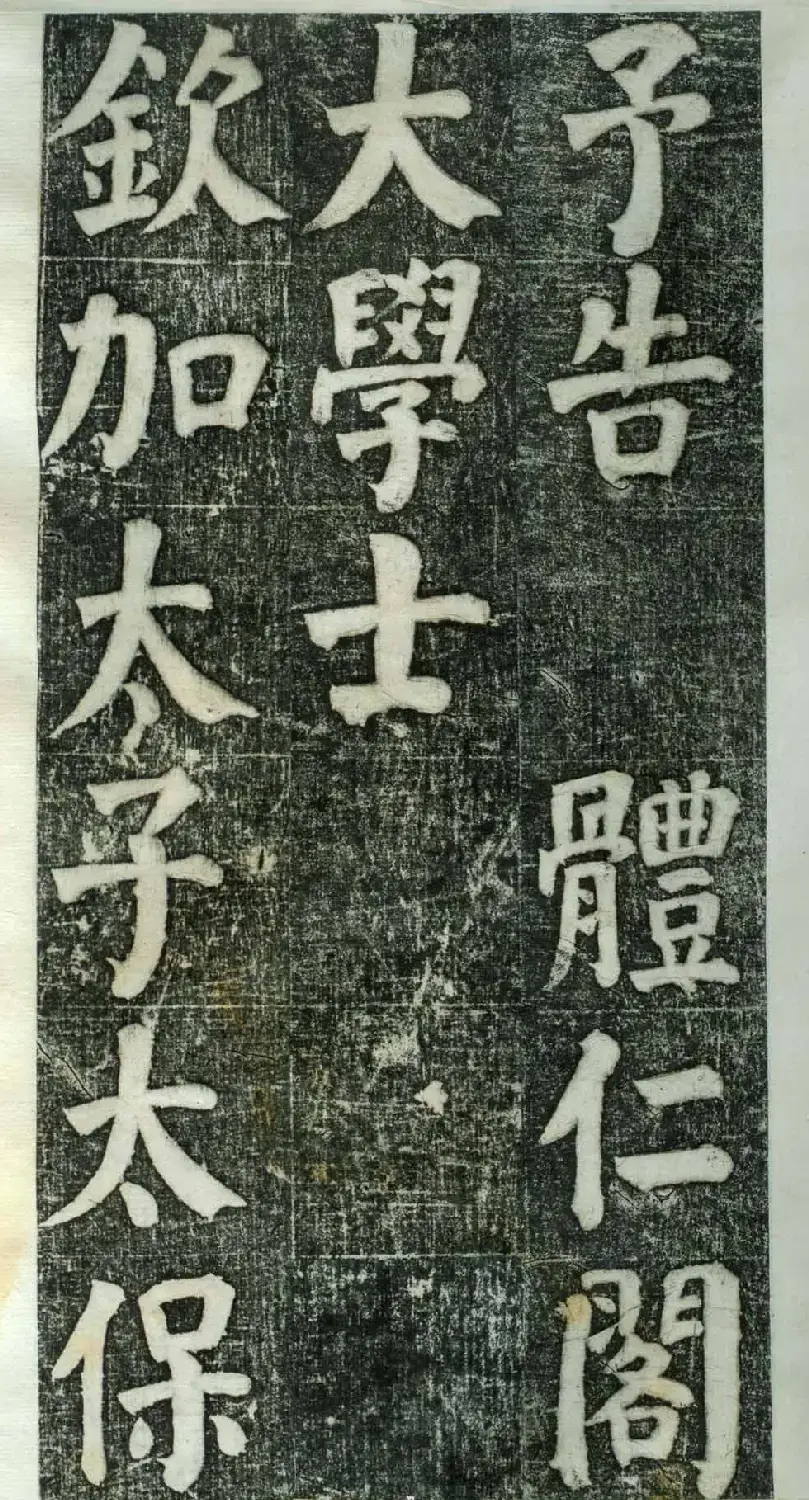 予告　體仁閣
大學士
欽加太子太保